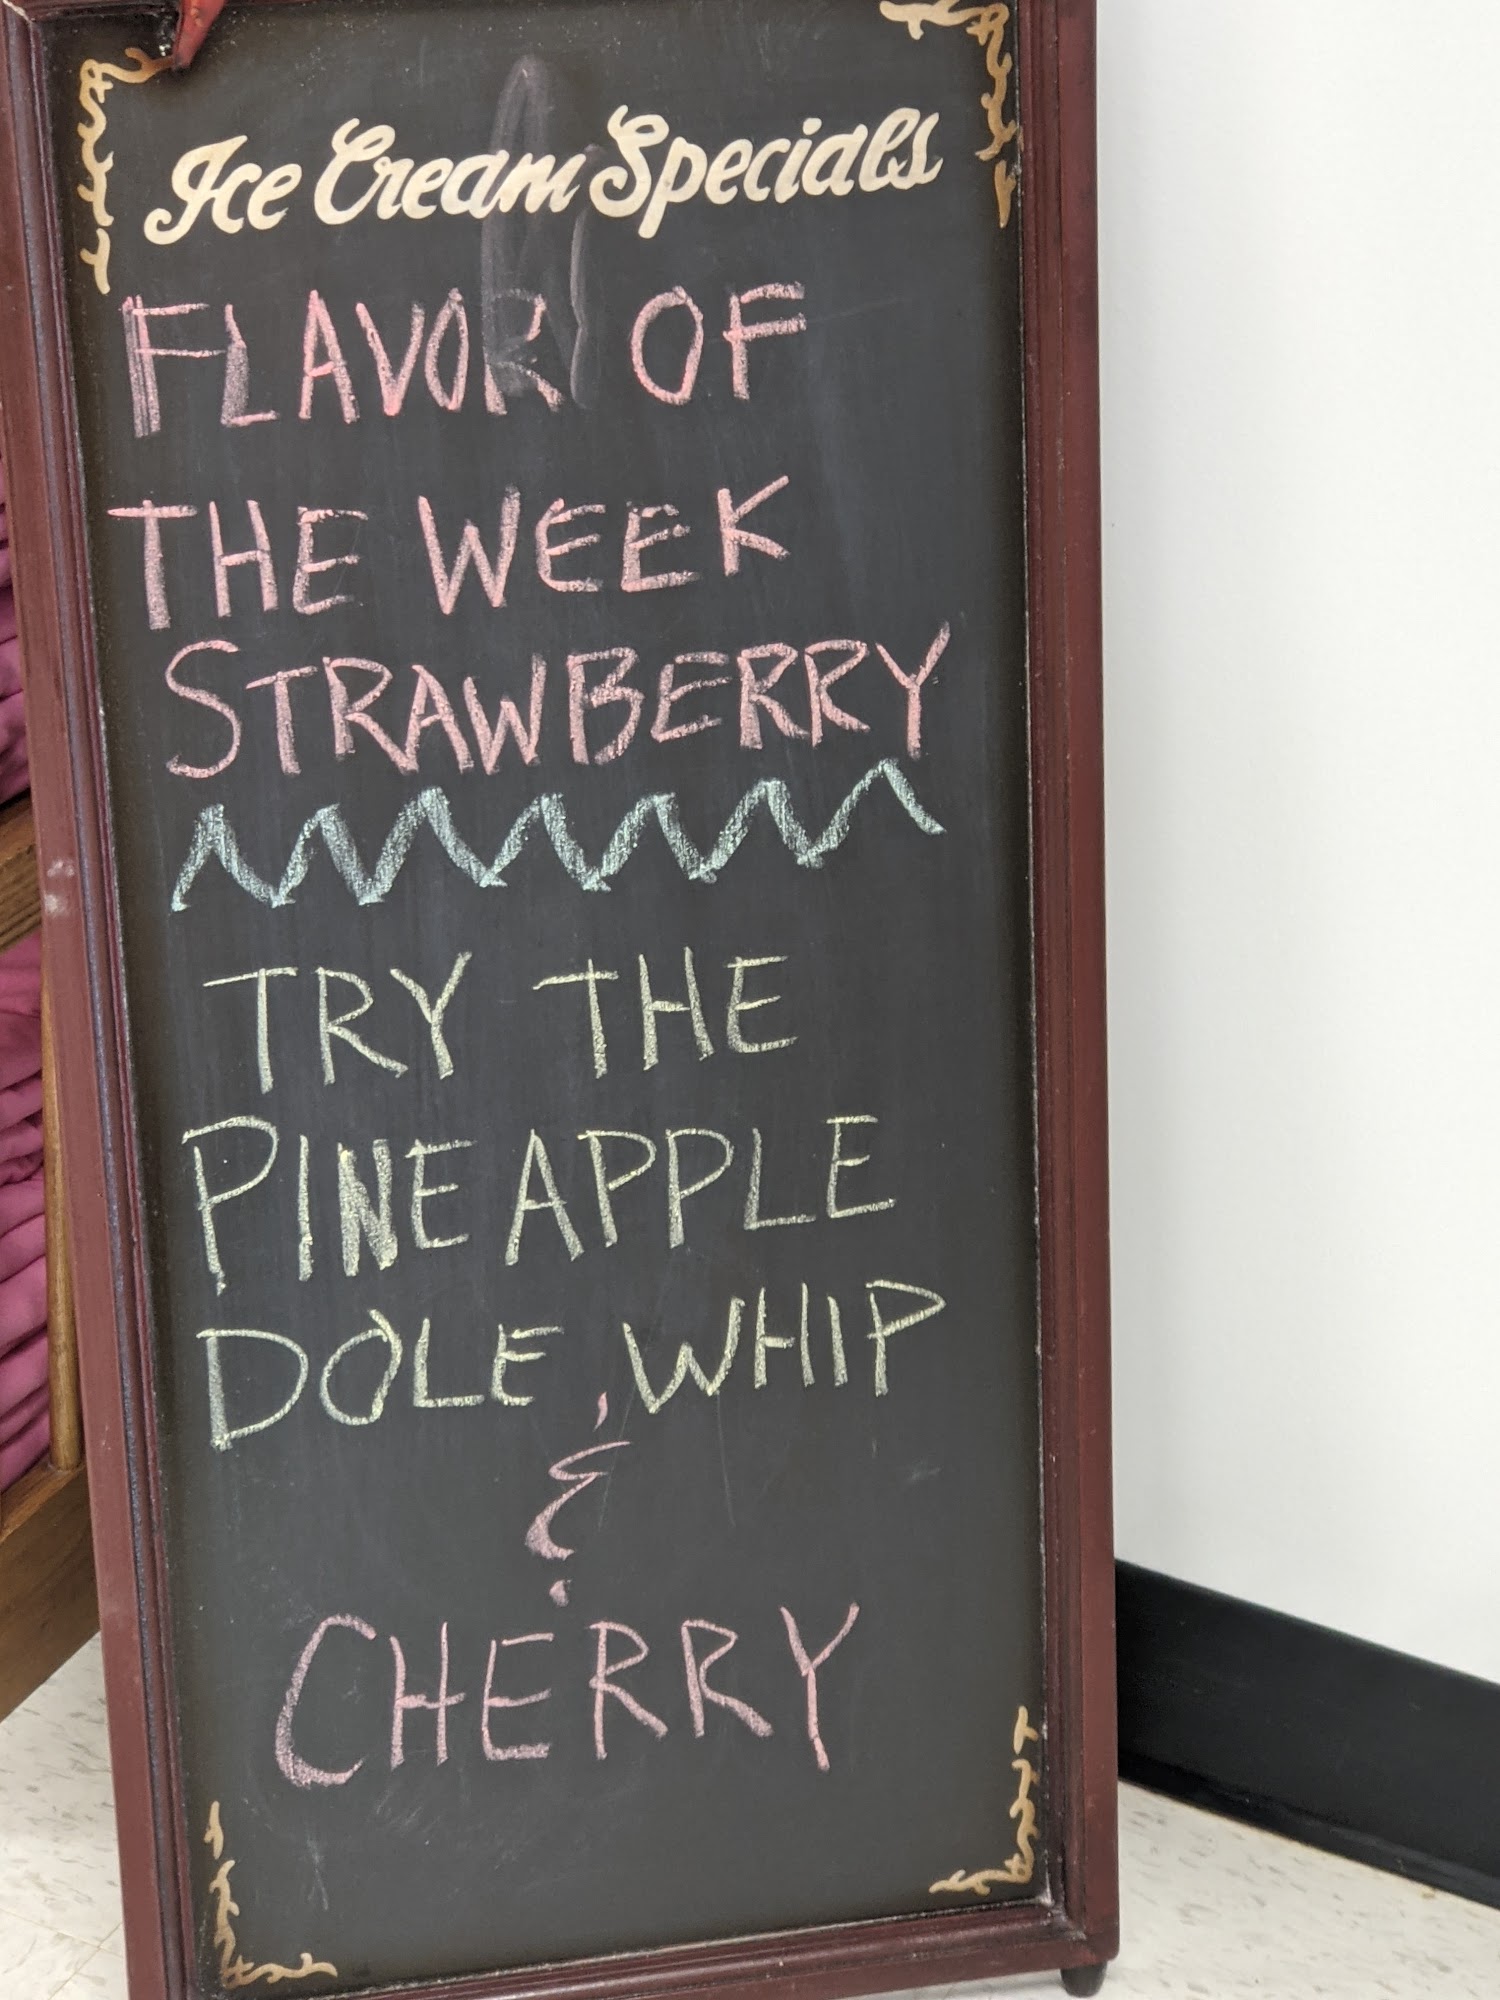 Ice Cream Specials
FLAVOR OF
THE WEEK
STRAWBERRY
TRY THE
PINEAPPLE
DOLE WHIP
&
CHERRY